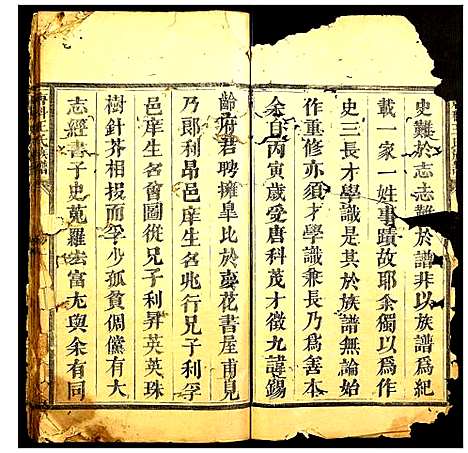 史難於志志難於譜非以族譜爲紀
載一家一姓事蹟故耶余獨以爲作
史三長才學識是其於族譜無論始
作重修亦須才學識兼長乃爲善本
余自丙寅歲受唐科茂才徵九諱錫
齡府君聘擁臯比於葵花書屋甫見
乃郎利昂邑庠生名兆行兄子利孚
邑庠生名會圖從兄子利昇英英珠
樹針芥相投而孚少孤貧倜儻有大
志經書子史蒐羅宏富尤與余有同
唐科王氏族譜